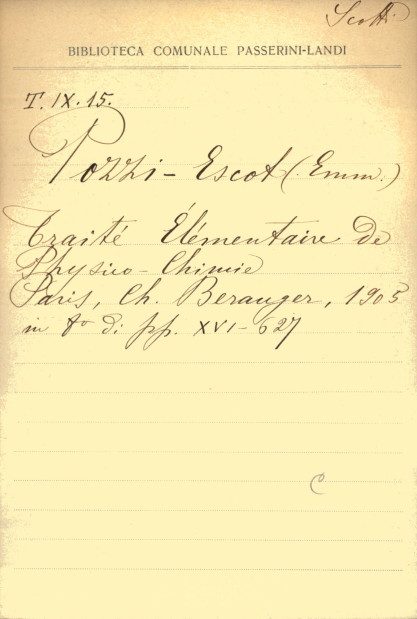 Scotti
BIBLIOTECA COMUNALE PASSERINI-LANDI
T. IX. 15.
Pozzi - Escot (Emm.)
Traité Élémentaire de
Physico - Chimie
Paris, Ch. Beranger, 1905
in 8° di pp. XVI - 627
C